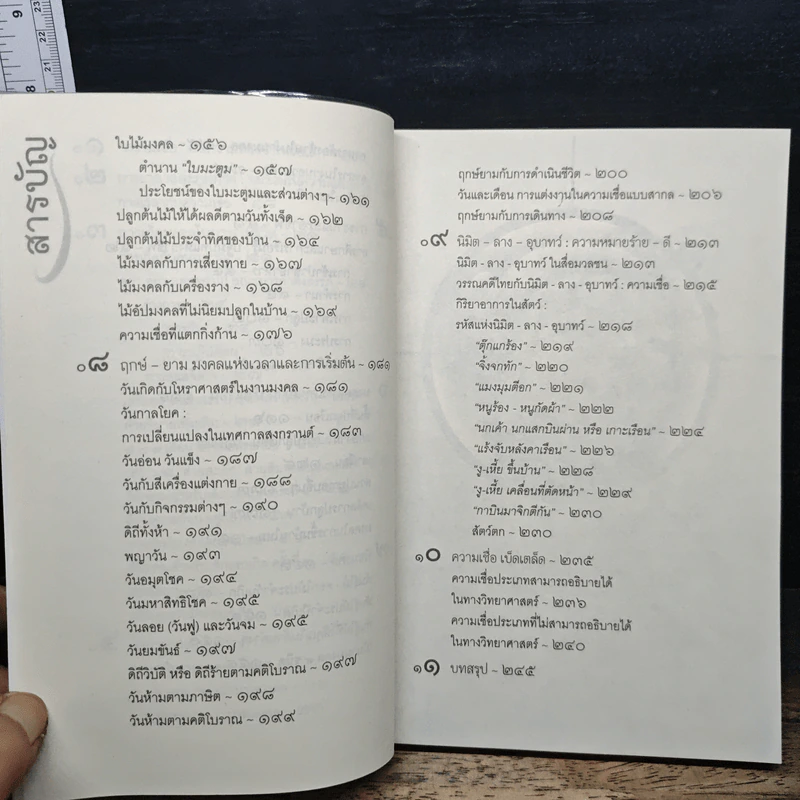 9
8
23
22
21
สารบัญ
ใบไม้มงคล ~ ๑๕๖
ตำนาน "ใบมะตูม" ~ ๑๕๗
ประโยชน์ของใบมะตูมและส่วนต่างๆ~ ๑๖๑
ปลูกต้นไม้ให้ได้ผลดีตามวันทั้งเจ็ด ~ ๑๖๒
ปลูกต้นไม้ประจำทิศของบ้าน ~ ๑๖๔
ไม้มงคลกับการเสี่ยงทาย ~ ๑๖๗
ไม้มงคลกับเครื่องราง ~ ๑๖๘
ไม้อัปมงคลที่ไม่นิยมปลูกในบ้าน ~ ๑๖๙
ความเชื่อที่แตกกิ่งก้าน ~ ๑๗๖
๐๘ ฤกษ์ – ยาม มงคลแห่งเวลาและการเริ่มต้น ~ ๑๘๑
วันเกิดกับโหราศาสตร์ในงานมงคล ~ ๑๘๑
วันกาลโยค :
การเปลี่ยนแปลงในเทศกาลสงกรานต์ ~ ๑๘๓
วันอ่อน วันแข็ง ~ ๑๘๗
วันกับสีเครื่องแต่งกาย ~ ๑๘๘
วันกับกิจกรรมต่างๆ ~ ๑๙๐
ดิถีทั้งห้า ~ ๑๙๑
พญาวัน ~ ๑๙๓
วันอมุตโชค ~ ๑๙๔
วันมหาสิทธิโชค ~ ๑๙๕
วันลอย (วันฟู) และวันจม ~ ๑๙๕
วันยมขันธ์ ~ ๑๙๗
ดิถีวิบัติ หรือ ดิถีร้ายตามคติโบราณ ~ ๑๙๗
วันห้ามตามภาษิต ~ ๑๙๘
วันห้ามตามคติโบราณ ~ ๑๙๙
ฤกษ์ยามกับการดำเนินชีวิต ~ ๒๐๐
วันและเดือน การแต่งงานในความเชื่อแบบสากล ~ ๒๐๖
ฤกษ์ยามกับการเดินทาง ~ ๒๐๘
๐๙ นิมิต – ลาง – อุบาทว์ : ความหมายร้าย – ดี ~ ๒๑๓
นิมิต - ลาง - อุบาทว์ ในสื่อมวลชน ~ ๒๑๓
วรรณคดีไทยกับนิมิต - ลาง - อุบาทว์ : ความเชื่อ ~ ๒๑๕
กิริยาอาการในสัตว์ :
รหัสแห่งนิมิต - ลาง - อุบาทว์ ~ ๒๑๘
"ตุ๊กแกร้อง" ~ ๒๑๙
"จิ้งจกทัก" ~ ๒๒๐
"แมงมุมตีอก" ~ ๒๒๑
"หนูร้อง - หนูกัดผ้า" ~ ๒๒๒
"นกเค้า นกแสกบินผ่าน หรือ เกาะเรือน" ~ ๒๒๔
"แร้งจับหลังคาเรือน" ~ ๒๒๖
"งู-เหี้ย ขึ้นบ้าน" ~ ๒๒๘
"งู-เหี้ย เคลื่อนที่ตัดหน้า" ~ ๒๒๙
"กาบินมาจิกตีกัน" ~ ๒๓๐
สัตว์ตก ~ ๒๓๐
๑๐ ความเชื่อ เบ็ดเตล็ด ~ ๒๓๕
ความเชื่อประเภทสามารถอธิบายได้
ในทางวิทยาศาสตร์ ~ ๒๓๖
ความเชื่อประเภทที่ไม่สามารถอธิบายได้
ในทางวิทยาศาสตร์ ~ ๒๔๐
๑๑ บทสรุป ~ ๒๔๕